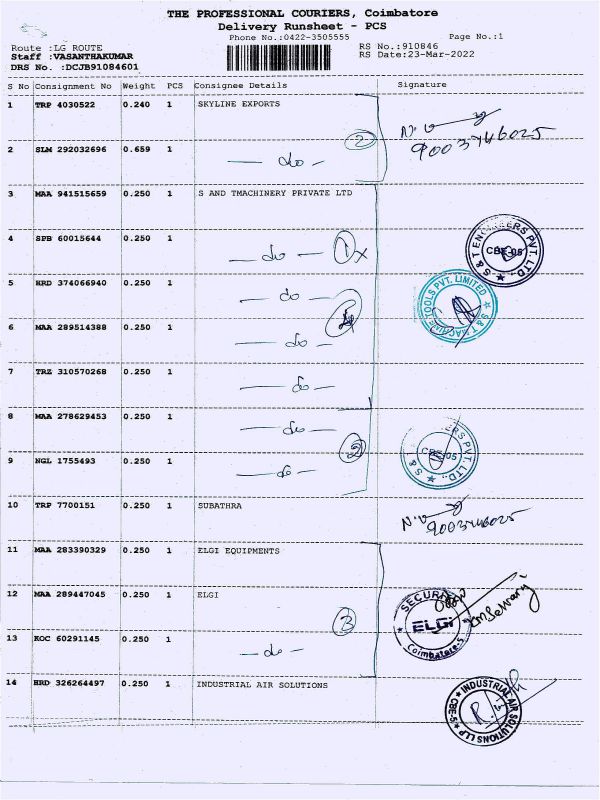 THE PROFESSIONAL COURIERS, Coimbatore
Delivery Runsheet - PCS
Phone No.:0422-3505555 Page No.:1
Route :LG ROUTE RS No.:910846
Staff :VASANTHAKUMAR RS Date:23-Mar-2022
DRS No. :DCJB91084601
S No Consignment No Weight PCS Consignee Details Signature
1 TRP 4030522 0.240 1 SKYLINE EXPORTS
N.V
9003746025
2 SLM 292032696 0.659 1 — do — 2
3 MAA 941515659 0.250 1 S AND TMACHINERY PRIVATE LTD
4 SPB 60015644 0.250 1 — do — 1x
S & T ENGINEERS PVT. LTD., CBE-05
5 HRD 374066940 0.250 1 — do —
S & T MACHINE TOOLS PVT. LIMITED
6 MAA 289514388 0.250 1 — do — 4
7 TRZ 310570268 0.250 1 — do —
8 MAA 278629453 0.250 1 — do — 2
9 NGL 1755493 0.250 1 — do —
S & ERS PVT. LTD., CBE-05
10 TRP 7700151 0.250 1 SUBATHRA
N.V
9003746025
11 MAA 283390329 0.250 1 ELGI EQUIPMENTS
12 MAA 289447045 0.250 1 ELGI 3
SECURITY ELGi Coimbatore-5
13 KOC 60291145 0.250 1 — do —
14 HRD 326264497 0.250 1 INDUSTRIAL AIR SOLUTIONS
INDUSTRIAL AIR SOLUTIONS LLP CBE-5